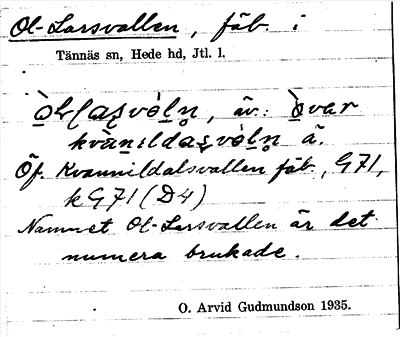 Ol-Larsvallen, fäb. i
Tännäs sn, Hede hd, Jtl. l.
äv:
ä.
Öf. Kvannildalsvallen fäb., G71,
k G71 (D4)
Namnet Ol-Larsvallen är det
numera brukade.
O. Arvid Gudmundson 1935.